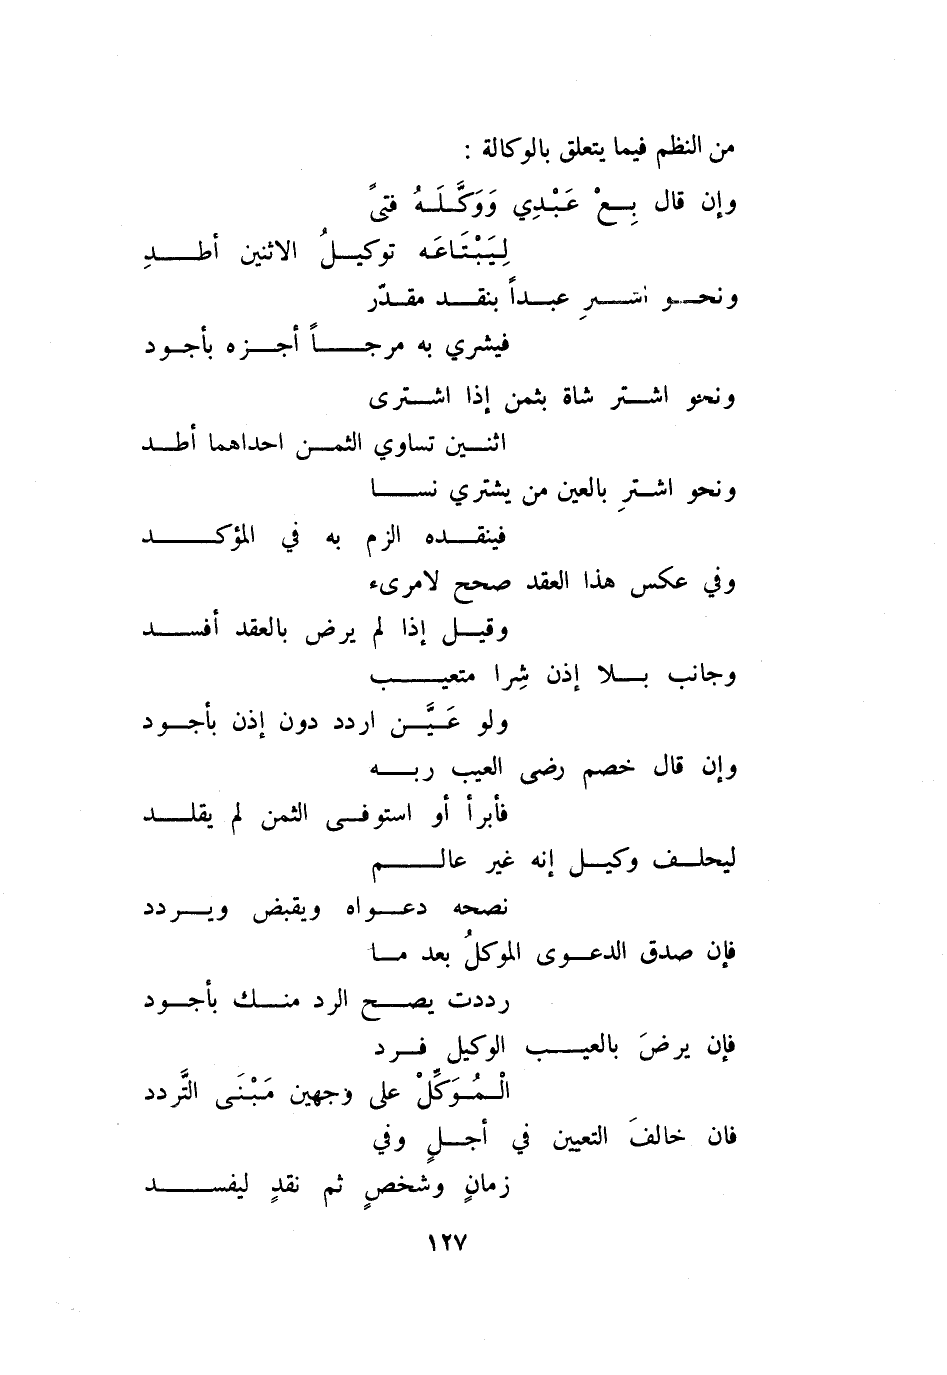 من النظم فيما يتعلق بالوكالة :
وإن قال بِعْ عَبْدِي وَوَكَّلَهُ فتىً
لِيَبْتَاعَه توكيلُ الاثنين أطدِ
ونحو اشترِ عبداً بنقد مقدّر
فيشري به مرجاً أجزه بأجود
ونحو اشتر شاة بثمن إذا اشترى
اثنين تساوي الثمن احداهما أطد
ونحو اشترِ بالعين من يشتري نسا
فينقده الزم به في المؤكد
وفي عكس هذا العقد صحح لامرىء
وقيل إذا لم يرض بالعقد أفسد
وجانب بلا إذن شِرا متعيب
ولو عَيَّن اردد دون إذن بأجود
وإن قال خصم رضى العيب ربه
فأبرأ أو استوفى الثمن لم يقلد
ليحلف وكيل إنه غير عالم
نصحه دعواه ويقبض ويردد
فإن صدق الدعوى الموكلُ بعد ما
رددت يصح الرد منك بأجود
فإن يرضَ بالعيب الوكيل فرد
الْمُوَكِّلْ على وجهين مَبْنَى التَّردد
فان خالفَ التعيين في أجلٍ وفي
زمانٍ وشخصٍ ثم نقدٍ ليفسد
١٢٧